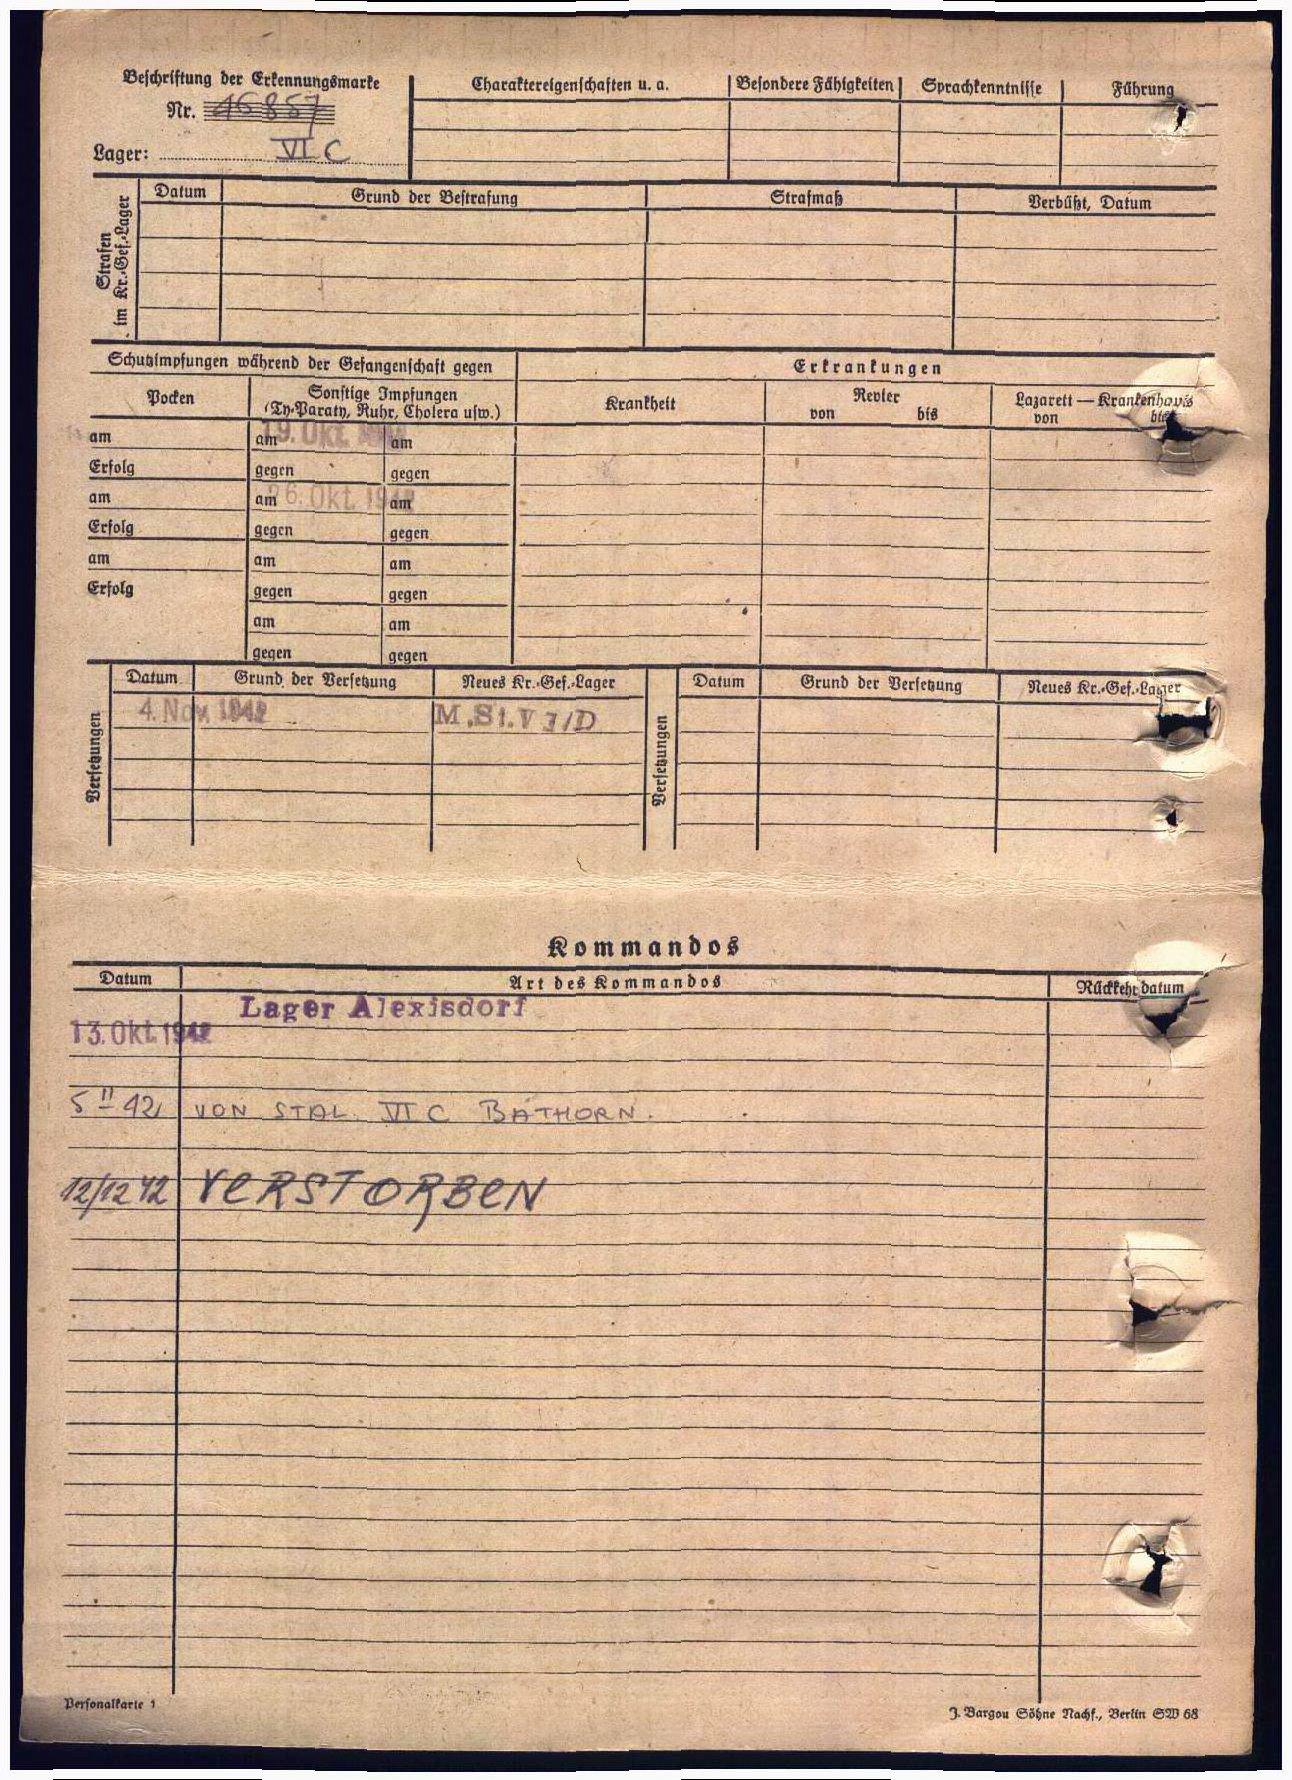 Beschriftung der Erkennungsmarke
Nr. 46857
Lager: VI C
Charaktereigenschaften u. a. Besondere Fähigkeiten Sprachkenntnisse Führung
Strafen im Kr.-Gef.-Lager
Datum Grund der Bestrafung Strafmaß Verbüßt, Datum
Schutzimpfungen während der Gefangenschaft gegen Erkrankungen
Pocken Sonstige Impfungen (Ty-Paraty, Ruhr, Cholera usw.) Krankheit Revier von bis Lazarett — Krankenhaus von bis
am am 19. Okt. am
Erfolg gegen gegen
am am 26. Okt. 1942 am
Erfolg gegen gegen
am am am
Erfolg gegen gegen
am am
gegen gegen
Versetzungen Datum Grund der Versetzung Neues Kr.-Gef.-Lager Versetzungen Datum Grund der Versetzung Neues Kr.-Gef.-Lager
4. Nov. 1942 M.St.V I/D
Kommandos
Datum Art des Kommandos Rückkehrdatum
Lager Alexisdorf
13. Okt. 1942
5 11 42 VON STAL. VI C BATHORN.
12/12 42 VERSTORBEN
Personalkarte 1
J. Bargou Söhne Nachf., Berlin SW 68